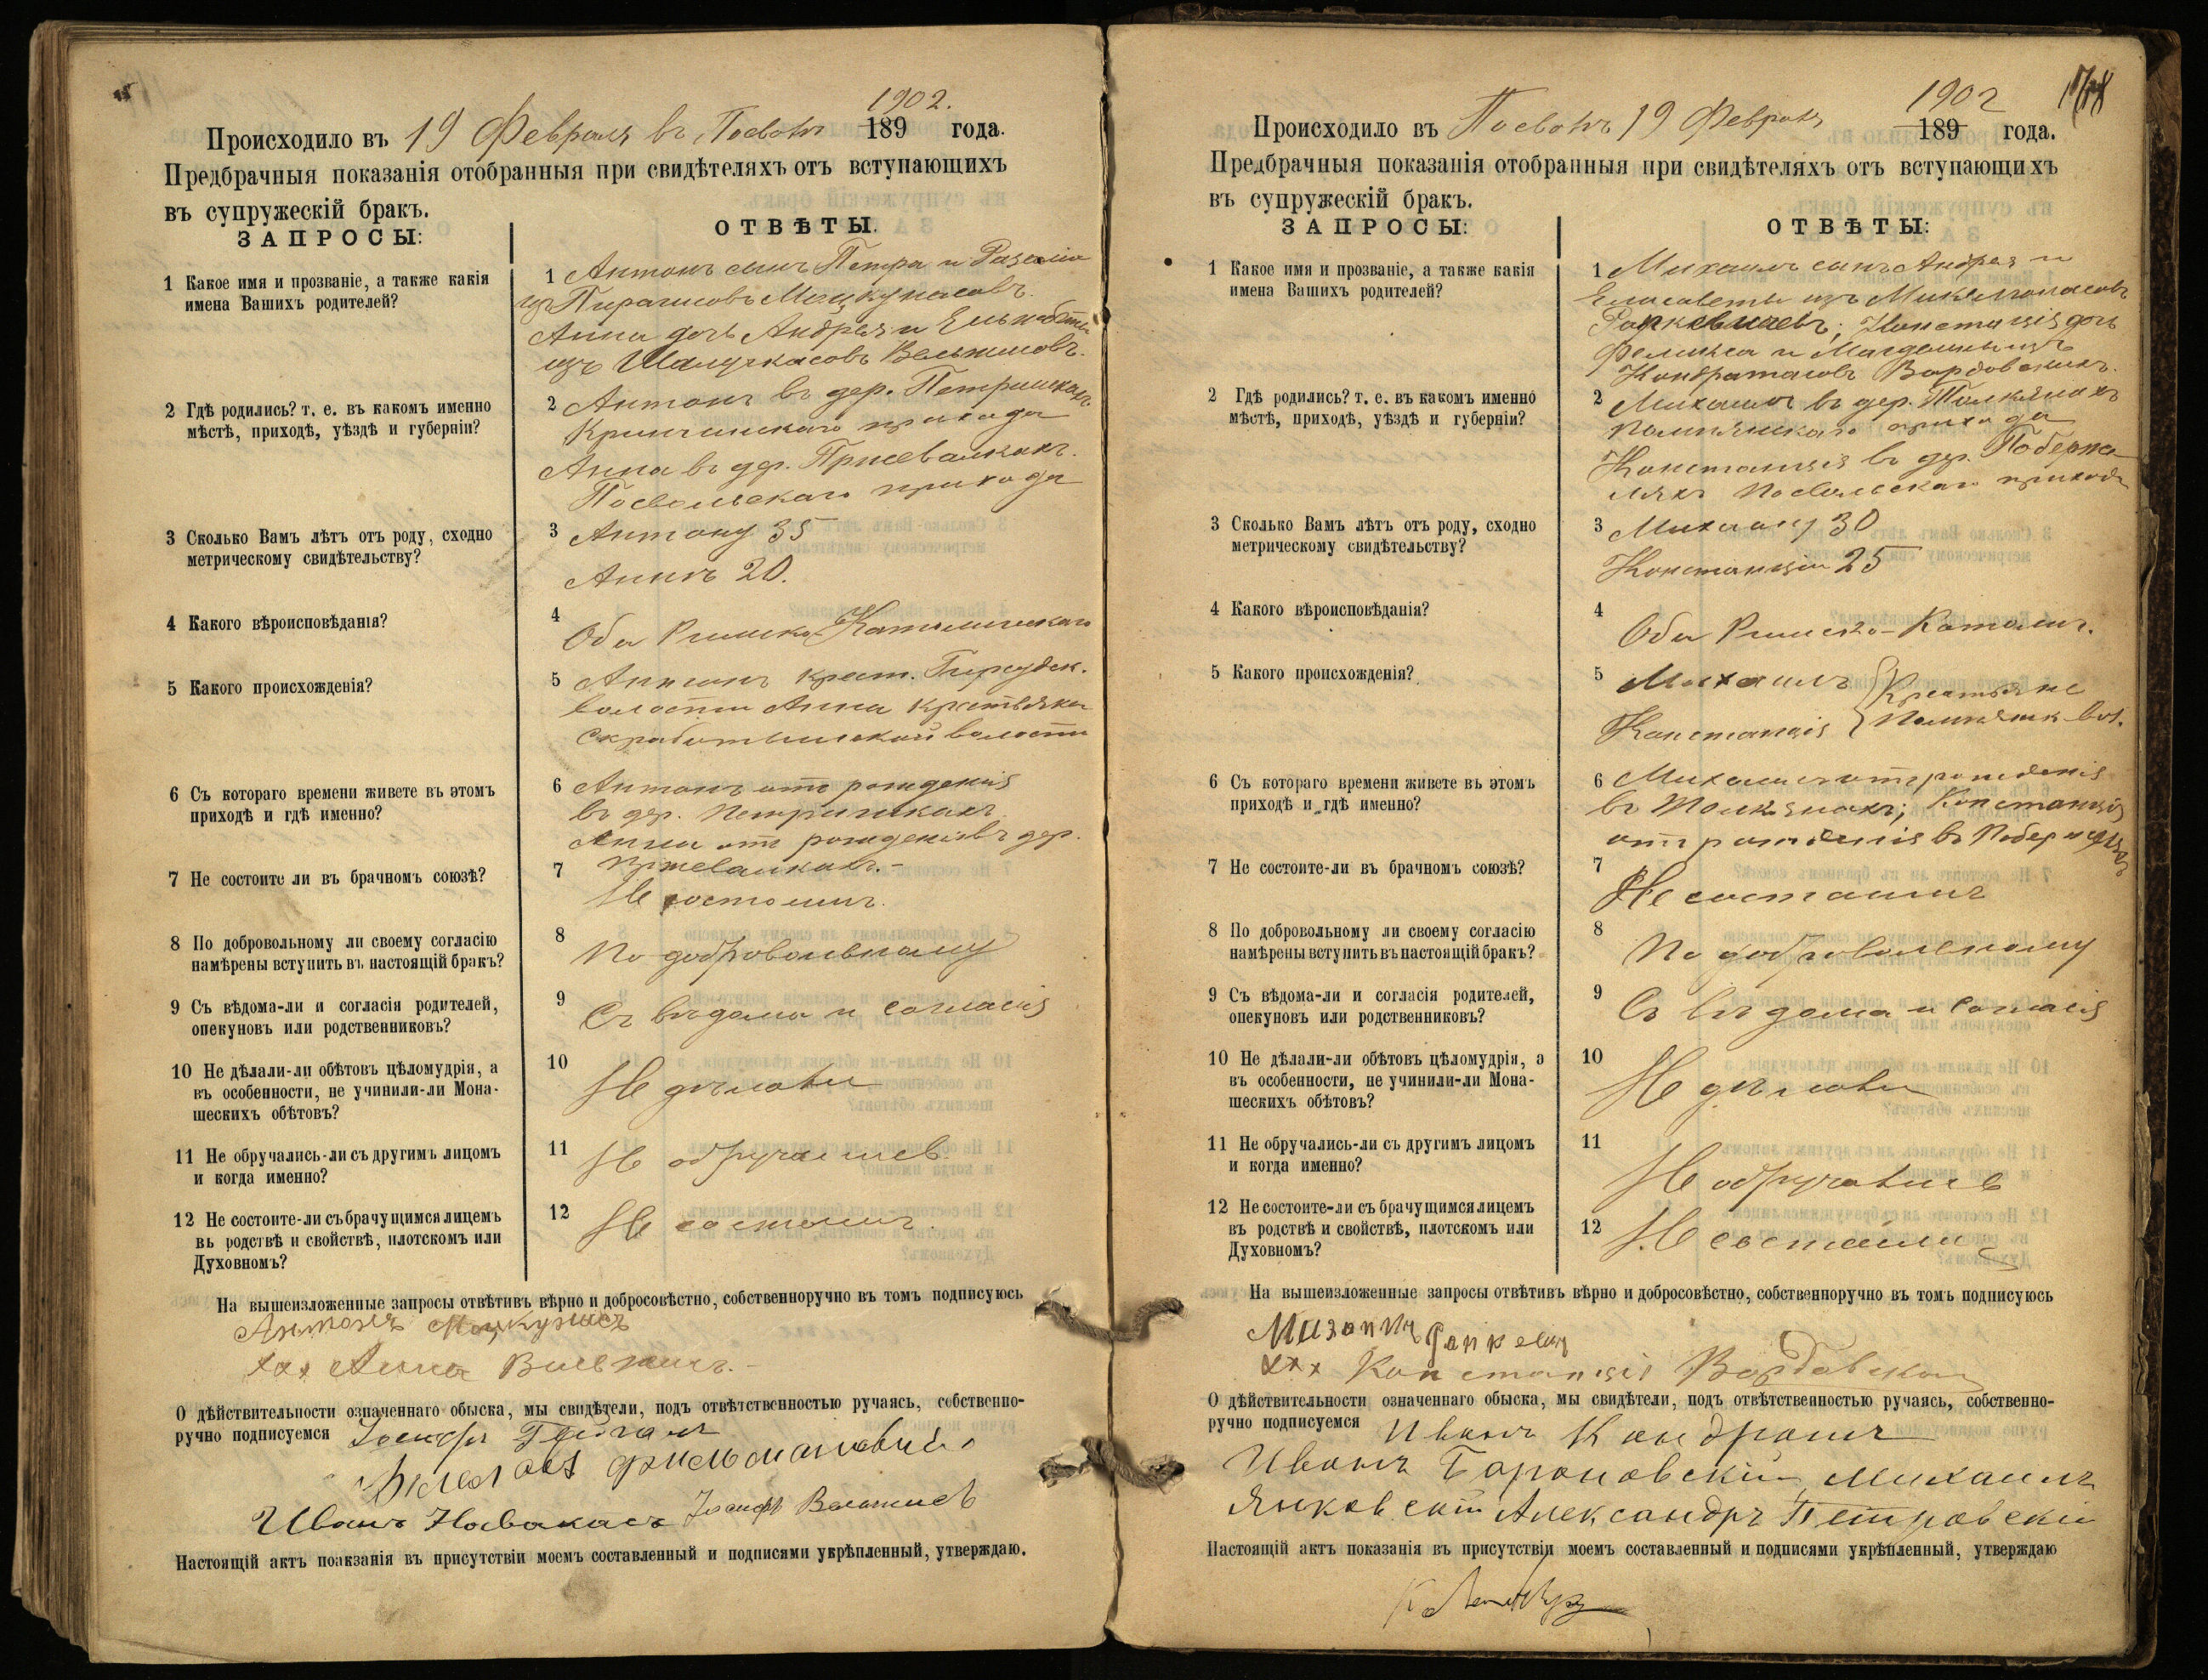 1902.
Происходило въ 19 Февраля въ Посволѣ 189 года.
Предбрачныя показанія отобранныя при свидѣтеляхъ отъ вступающихъ
въ супружескій бракъ.
ЗАПРОСЫ:
ОТВѢТЫ.
1 Какое имя и прозваніе, а также какія
имена Вашихъ родителей?
1 Антонъ сынъ Петра и Розаліи
изъ Мацкунасовъ.
Анна дочь Андрея и Ельжбеты
изъ
2 Гдѣ родились? т. е. въ какомъ именно
мѣстѣ, приходѣ, уѣздѣ и губерніи?
2 Антонъ въ дер. Петришкахъ
Кринчинскаго прихода
Анна въ дер.
Посвольскаго прихода
3 Сколько Вамъ лѣтъ отъ роду, сходно
метрическому свидѣтельству?
3 Антону 35
Аннѣ 20.
4 Какого вѣроисповѣданія?
4
Оба Римско-Католическаго
5 Какого происхожденія?
5 Антонъ крест.
волости Анна крестьянка
волости
6 Съ котораго времени живете въ этомъ
приходѣ и гдѣ именно?
6 Антонъ отъ рожденія
въ дер. Петришкахъ
Анна отъ рожденія въ дер.
7 Не состоите ли въ брачномъ союзѣ?
7
Не состоимъ.
8 По добровольному ли своему согласію
намѣрены вступить въ настоящій бракъ?
8
По добровольному
9 Съ вѣдома-ли и согласія родителей,
опекуновъ или родственниковъ?
9
Съ вѣдома и согласія
10 Не дѣлали-ли обѣтовъ цѣломудрія, а
въ особенности, не учинили-ли Мона-
шескихъ обѣтовъ?
10
Не дѣлали
11 Не обручались-ли съ другимъ лицомъ
и когда именно?
11
Не обручались.
12 Не состоите-ли съ брачущимся лицемъ
въ родствѣ и свойствѣ, плотскомъ или
Духовномъ?
12
Не состоимъ.
На вышеизложенные запросы отвѣтивъ вѣрно и добросовѣстно, собственноручно въ томъ подписуюсь
Антонъ Мацкунасъ
xxx Анна
О дѣйствительности означеннаго обыска, мы свидѣтели, подъ отвѣтственностью ручаясь, собственно-
ручно подписуемся Іосифъ
Иванъ Новакасъ Іосифъ
Настоящій актъ поакзанія въ присутствіи моемъ составленный и подписями укрѣпленный, утверждаю.
1902
Происходило въ Посволѣ 19 Февраля 189 года.
Предбрачныя показанія отобранныя при свидѣтеляхъ отъ вступающихъ
въ супружескій бракъ.
ЗАПРОСЫ:
ОТВѢТЫ:
1 Какое имя и прозваніе, а также какія
имена Вашихъ родителей?
1 Михаилъ сынъ Андрея и
Елисаветы изъ
Констанція дочь
Феликса и Магдалины изъ
Кондратасовъ
2 Гдѣ родились? т. е. въ какомъ именно
мѣстѣ, приходѣ, уѣздѣ и губерніи?
2 Михаилъ въ дер.
прихода
Констанція въ дер.
Посвольскаго прихода
3 Сколько Вамъ лѣтъ отъ роду, сходно
метрическому свидѣтельству?
3 Михаилу 30
Констанціи 25
4 Какого вѣроисповѣданія?
4
Оба Римско-Католич.
5 Какого происхожденія?
5 Михаилъ } Крестьяне
Констанція } вол.
6 Съ котораго времени живете въ этомъ
приходѣ и гдѣ именно?
6 Михаилъ отъ рожденія
въ Констанція
отъ рожденія въ
7 Не состоите-ли въ брачномъ союзѣ?
7
Не состоимъ
8 По добровольному ли своему согласію
намѣрены вступить въ настоящій бракъ?
8
По добровольному
9 Съ вѣдома-ли и согласія родителей,
опекуновъ или родственниковъ?
9
Съ вѣдома и согласія
10 Не дѣлали-ли обѣтовъ цѣломудрія, а
въ особенности, не учинили-ли Мона-
шескихъ обѣтовъ?
10
Не дѣлали
11 Не обручались-ли съ другимъ лицомъ
и когда именно?
11
Не обручались
12 Не состоите-ли съ брачущимся лицемъ
въ родствѣ и свойствѣ, плотскомъ или
Духовномъ?
12
Не состоимъ
На вышеизложенные запросы отвѣтивъ вѣрно и добросовѣстно, собственноручно въ томъ подписуюсь
xxx Констанція
О дѣйствительности означеннаго обыска, мы свидѣтели, подъ отвѣтственностью ручаясь, собственно-
ручно подписуемся Иванъ Кондратъ
Иванъ Бароновскій Михаилъ
Янковскій Александръ Петровскій
Настоящій актъ показанія въ присутствіи моемъ составленный и подписями укрѣпленный, утверждаю